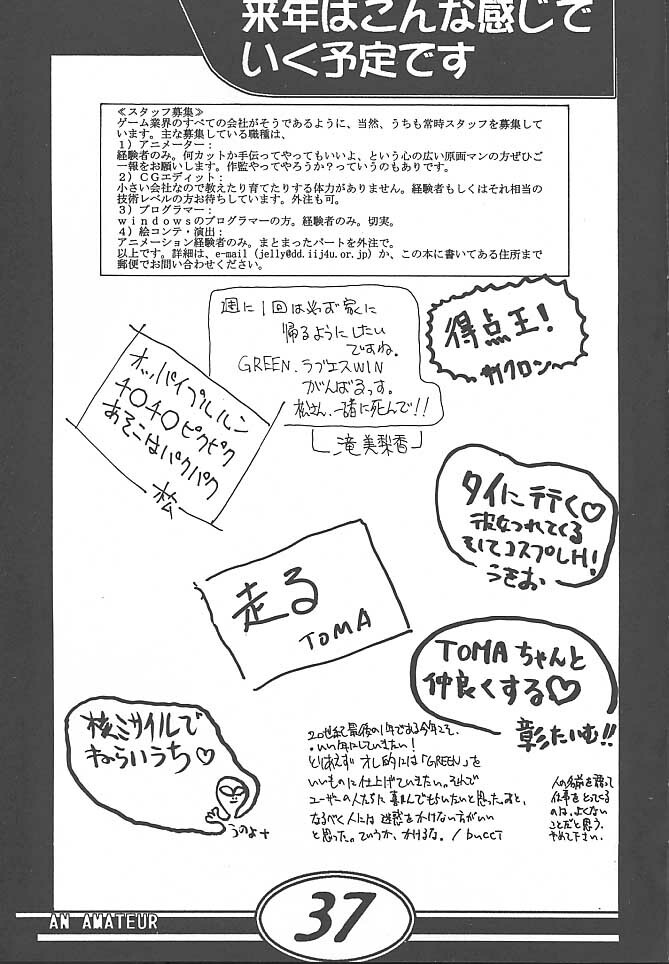 来年はこんな感じで
いく予定です
≪スタッフ募集≫
ゲーム業界のすべての会社がそうであるように、当然、うちも常時スタッフを募集して
います。主な募集している職種は、
1）アニメーター：
経験者のみ。何カットか手伝ってやってもいいよ、という心の広い原画マンの方ぜひご
一報をお願いします。作監やってやろうか？っていうのもありです。
2）CGエディット：
小さい会社なので教えたり育てたりする体力がありません。経験者もしくはそれ相当の
技術レベルの方お待ちしています。外注も可。
3）プログラマー：
windowsのプログラマーの方。経験者のみ。切実。
4）絵コンテ・演出：
アニメーション経験者のみ。まとまったパートを外注で。
以上です。詳細は、e-mail（jelly@dd.iij4u.or.jp）か、この本に書いてある住所まで
郵便でお問い合わせください。
週に1回は必ず家に
帰るようにしたい
ですね。
GREEN、ラブエスWIN
がんばるっす。
松さん、一緒に死んで!!
滝美梨香
得点王!
サイクロン
オッパイプルルン
4040ピクピク
あそこはパクパク
松
タイに行く♡
彼女つれてくる
そしてコスプレH!
うきお
走る
TOMA
TOMAちゃんと
仲良くする♡
彰たいむ!!
核ミサイルで
ねらいうち♡
うのよ+
20世紀最後の1年である今年こそ、
いい年にしていきたい!
とりあえずオレ的には「GREEN」を
いいものに仕上げていきたい。それで
ユーザーの人たちに喜んでもらいたいと思った。あと、
なるべく人には迷惑をかけない方がいい
と思った。ていうか、かけるな。/bucci
人の名前を語って
仕事をとってくる
のは、よくない
ことだと思う。
やめて下さい。
AN AMATEUR
37